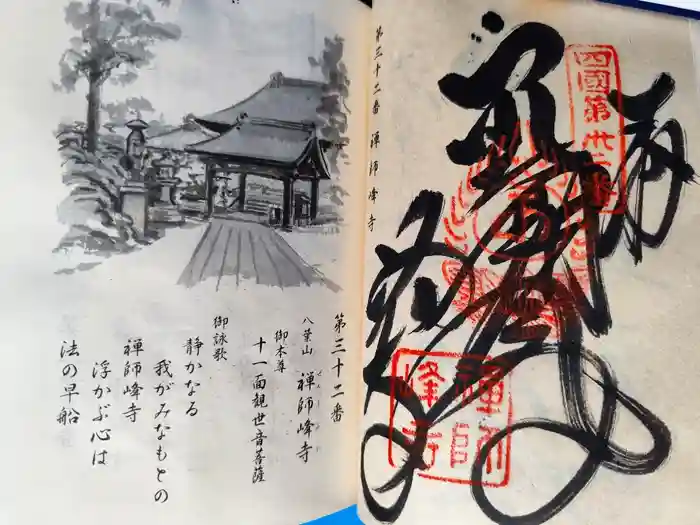 第三十二番 禅師峰寺
四國第卅二番
奉
禅師
峰寺
第三十二番
八葉山 禅師峰寺
御本尊
十一面観世音菩薩
御詠歌
静かなる
我がみなもとの
禅師峰寺
浮かぶ心は
法の早船